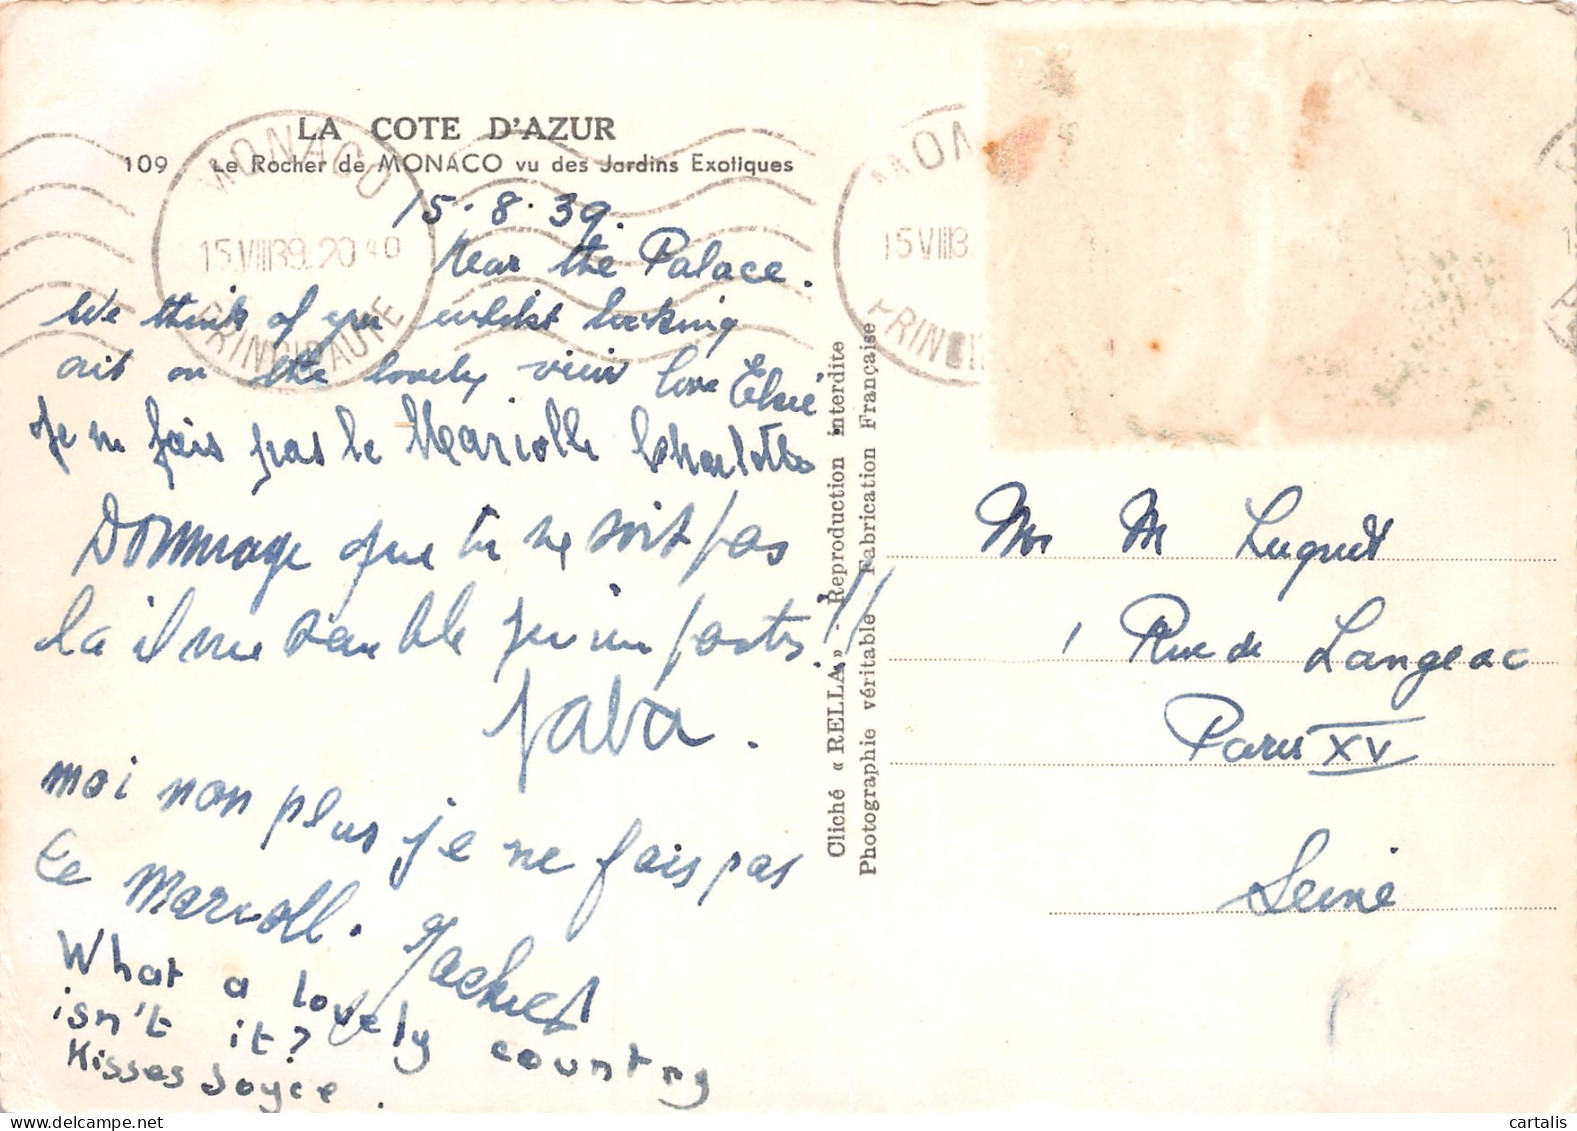 LA COTE D'AZUR
109 Le Rocher de MONACO vu des Jardins Exotiques
MONACO
15 VIII 39. 20 40
PRINCIPAUTE
MON
15 VIII 3
PRINCI
15.8.39.
Near the Palace.
We think of you whilst looking
out on the lovely view love Elsie
Je ne fais pas le Mariolle Charlotte
Dommage que tu ne soit pas
là il me semble qu'un
moi non plus je ne fais pas
le Marioll.
What a lovely country
isn't it?
Kisses Joyce.
Cliché « RELLA » - Reproduction interdite
Photographie véritable - Fabrication Française
M Luquet
1 Rue de Langeac
Paris XV
Seine
cartalis